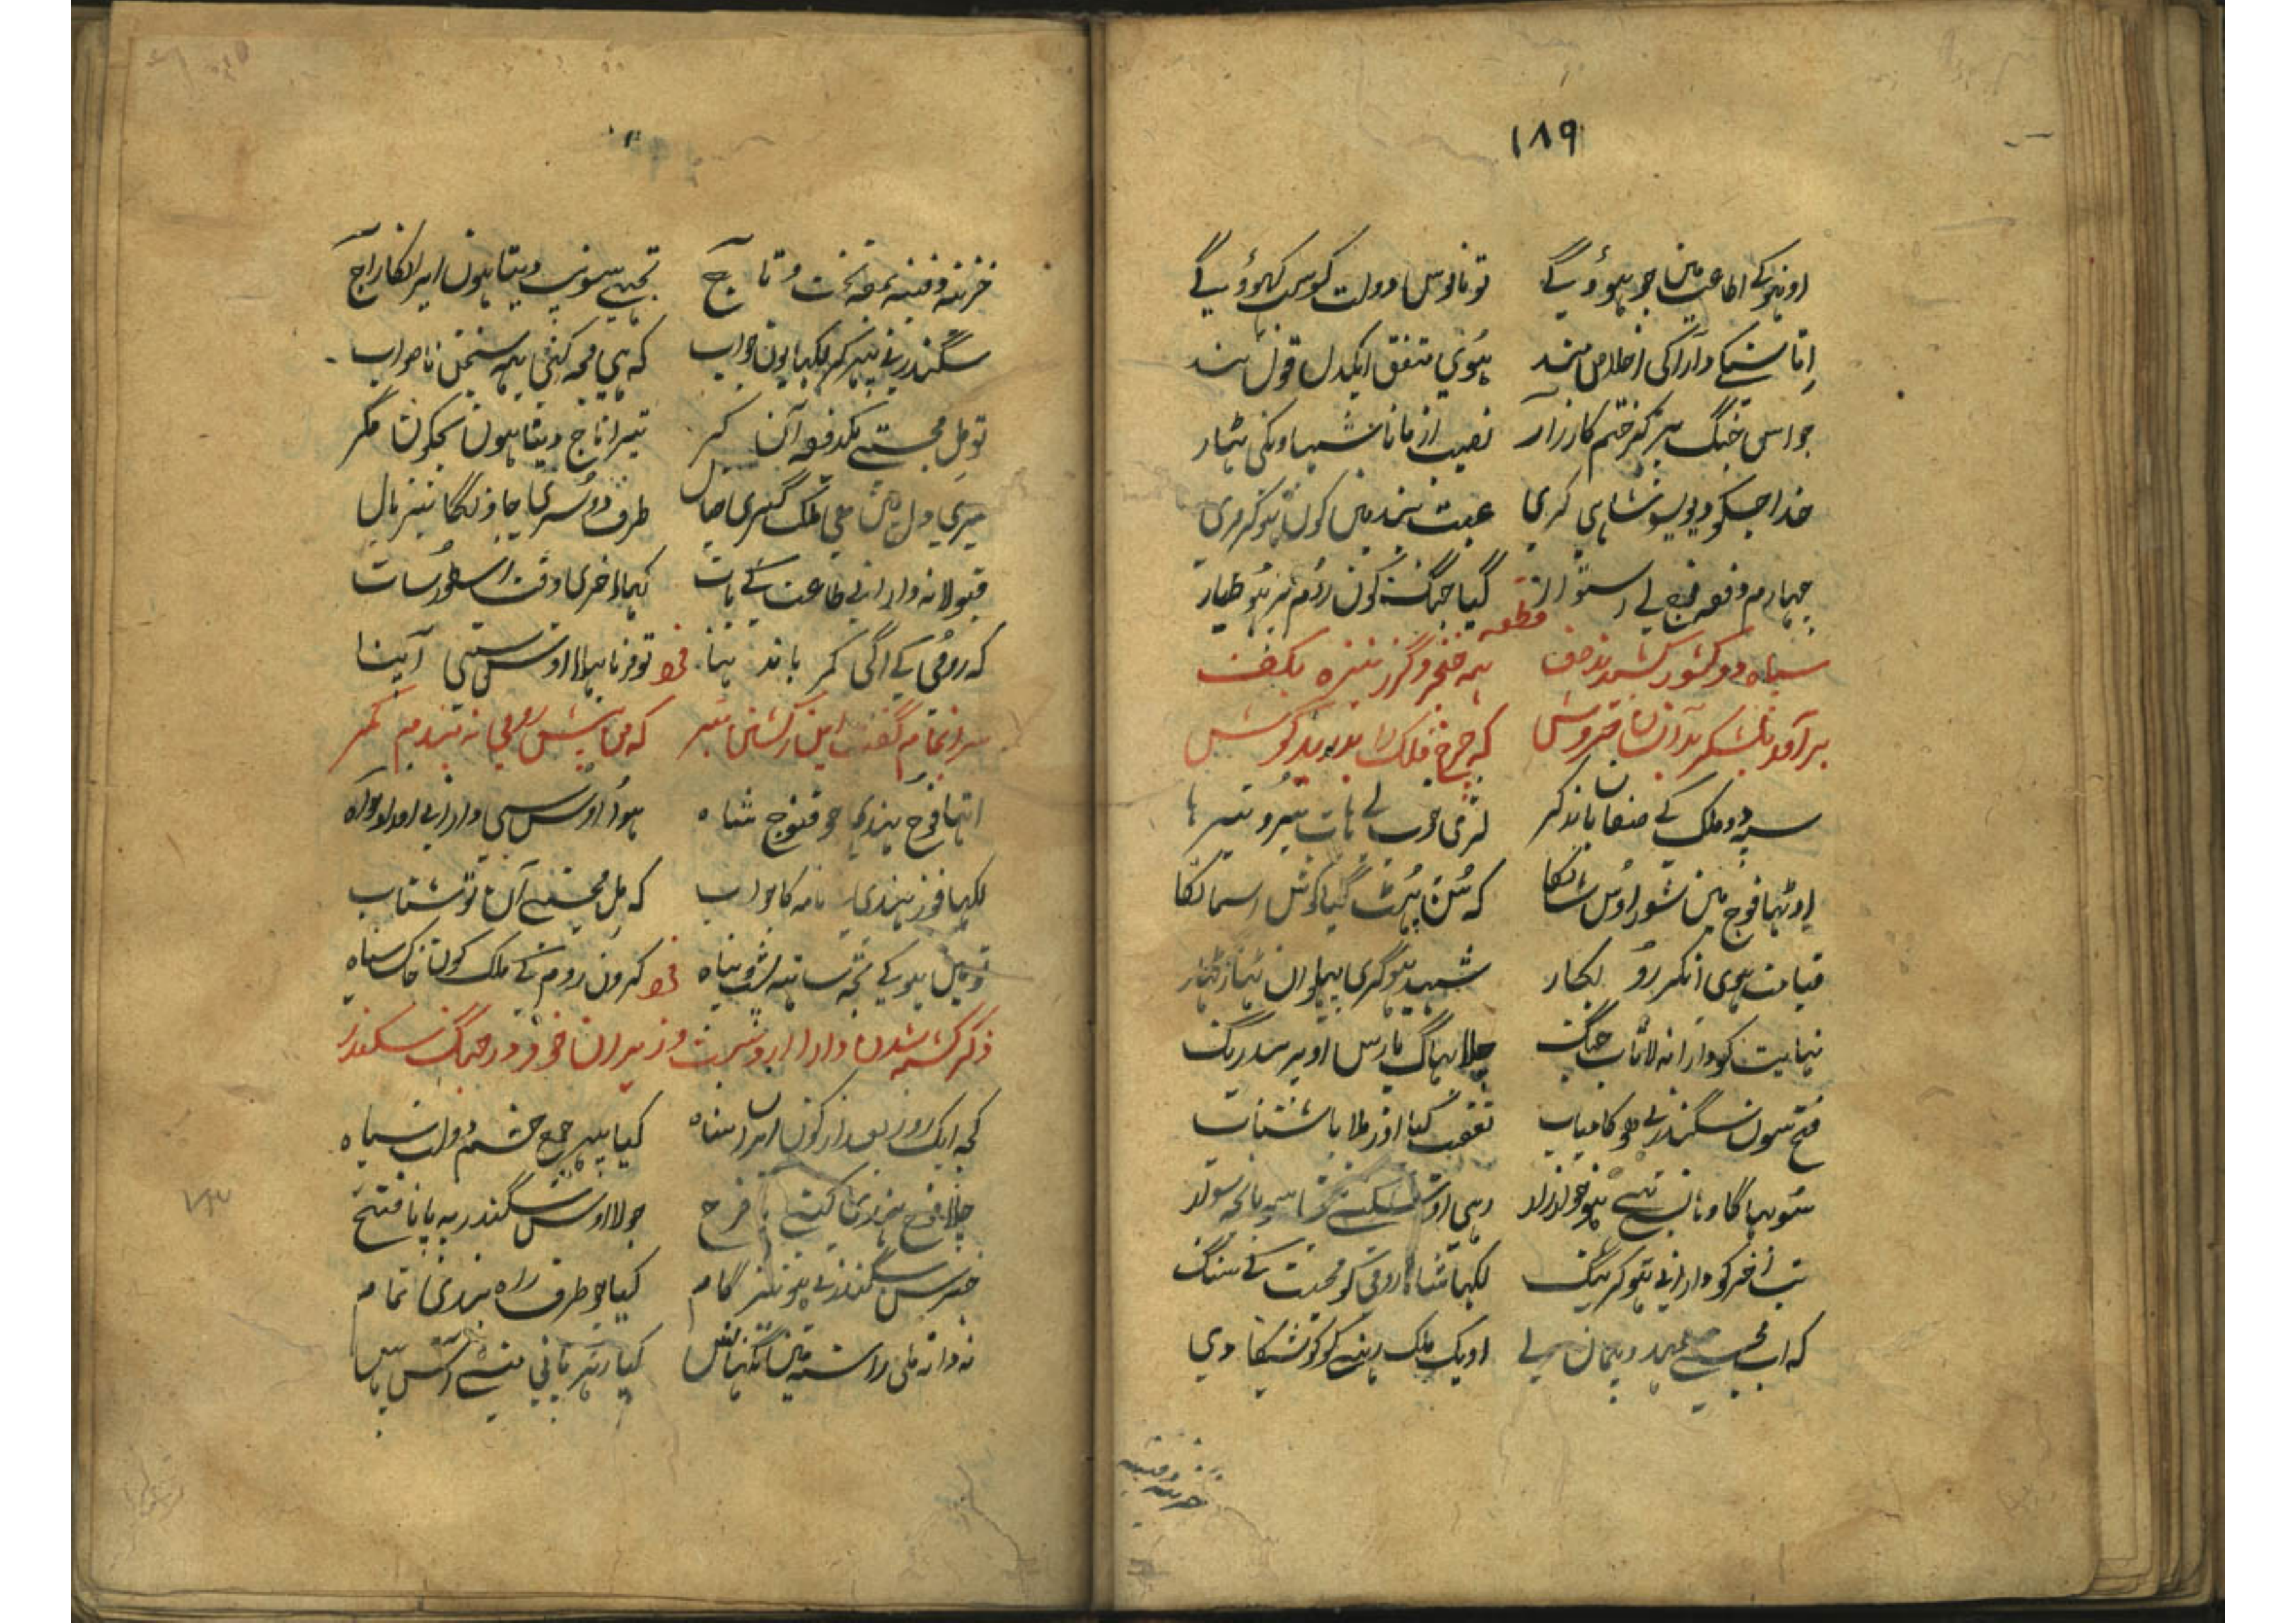 ۱۸۹
اونہو کے اطاعت میں جو ہوؤیگے تو ناموس دولت کو سب کہوؤیگے
اتا سنکے دارا کی اخلاص مند ہوئی متفق ایکدل قول بند
جو اسی جنگ پر کر ختم کارزار نصیب ازمانا شہا اونکی ٹہار
خدا جسکو دیوی سو شاہی کری عبث بند میں کون ہو کر مری
چہارم دفعہ فوج لے استوار گیا جنگ کون روم پر ہو طیار
قطعہ
سپاه دو کشور کشیدند صف همه خنجر و گرز نیزه بکف
برآمد ز لشکر بدانسان خروش که چرخ فلک را بدرید گوش
سپہ دو ملک کے صفان باند کر لری خوب لے ہات تیر و تبر
اوٹہا فوج مین شور اوس شان کا کہ سن پہٹ گیا گوش اسمان کا
قیامت ہوی انکر رو بکار شہید ہو گری پہلوان ٹہار ٹہار
نہایت کو دارا نہ لا تاب جنگ چلا بہاگ پارس اوپر بیدرنگ
فتح سون سکندر بی ہو کامیاب تعقب کیا اوز ملا باشتاب
سو بہاگا وہان سے ہو خوار زار وہی اوس
تب اخر کو دارا نے ہو کر تنگ لکہا شاہ رومی کو محبت کے سنگ
کہ اب مجسے عہد و پیمان لے او یک ملک رہنے کو کوشیکا دی
خزینہ دفینہ
خزینہ دفینہ بمعہ تخت و تاج تجہے سونپ دیتا ہون ایران کا راج
سکندر نے پہر کر لکہا یون جواب کہ ہی مجہ کنی یہہ سخن ناصواب
تو مل مجستے یکدفعہ آن کر تیرا تاج دیتا ہون تجکون مگر
میری دل میں نہیں ملک گیری خیال طرف دوسری جاونگا نیز بال
قبولا نہ دارا نے طاعت کے بات کہا اخری وقت ارسطو سات
کہ رومی کے اگی کمر باندہنا تو فرنا بہلا اوس ستی آپنا
سرانجام گفت این ز کشتن بتر که من پیش رومی نه بندم کمر
اتہا فوج ہندی جو قنوج شاہ ہوا اوس سی دارا نے امداد خواہ
لکہا فور ہندی نامہ کا جواب کہ مل مجستے آن تو شتاب
تو مل ہو کے تجہ ساتہہ پشت و پناہ کرون روم کے ملک کون خاک سیاہ
ذکر کشته شدن دارا از دست وزیران خود در جنگ سکندر
کجہ ایک روز بعد از کون ایران شاہ کیا پہر جمع حشم و دولت سپاہ
چلا فوج ہندی کیتے با فرح جو لا اوس سکندر پہ پانا فتح
خبر سن سکندر نے ہو تیز گام کیا جو طرف راہ بندی تمام
نہ دانہ ملی راستہ میں نگہاس کیا زہر پانی منے اس پاس